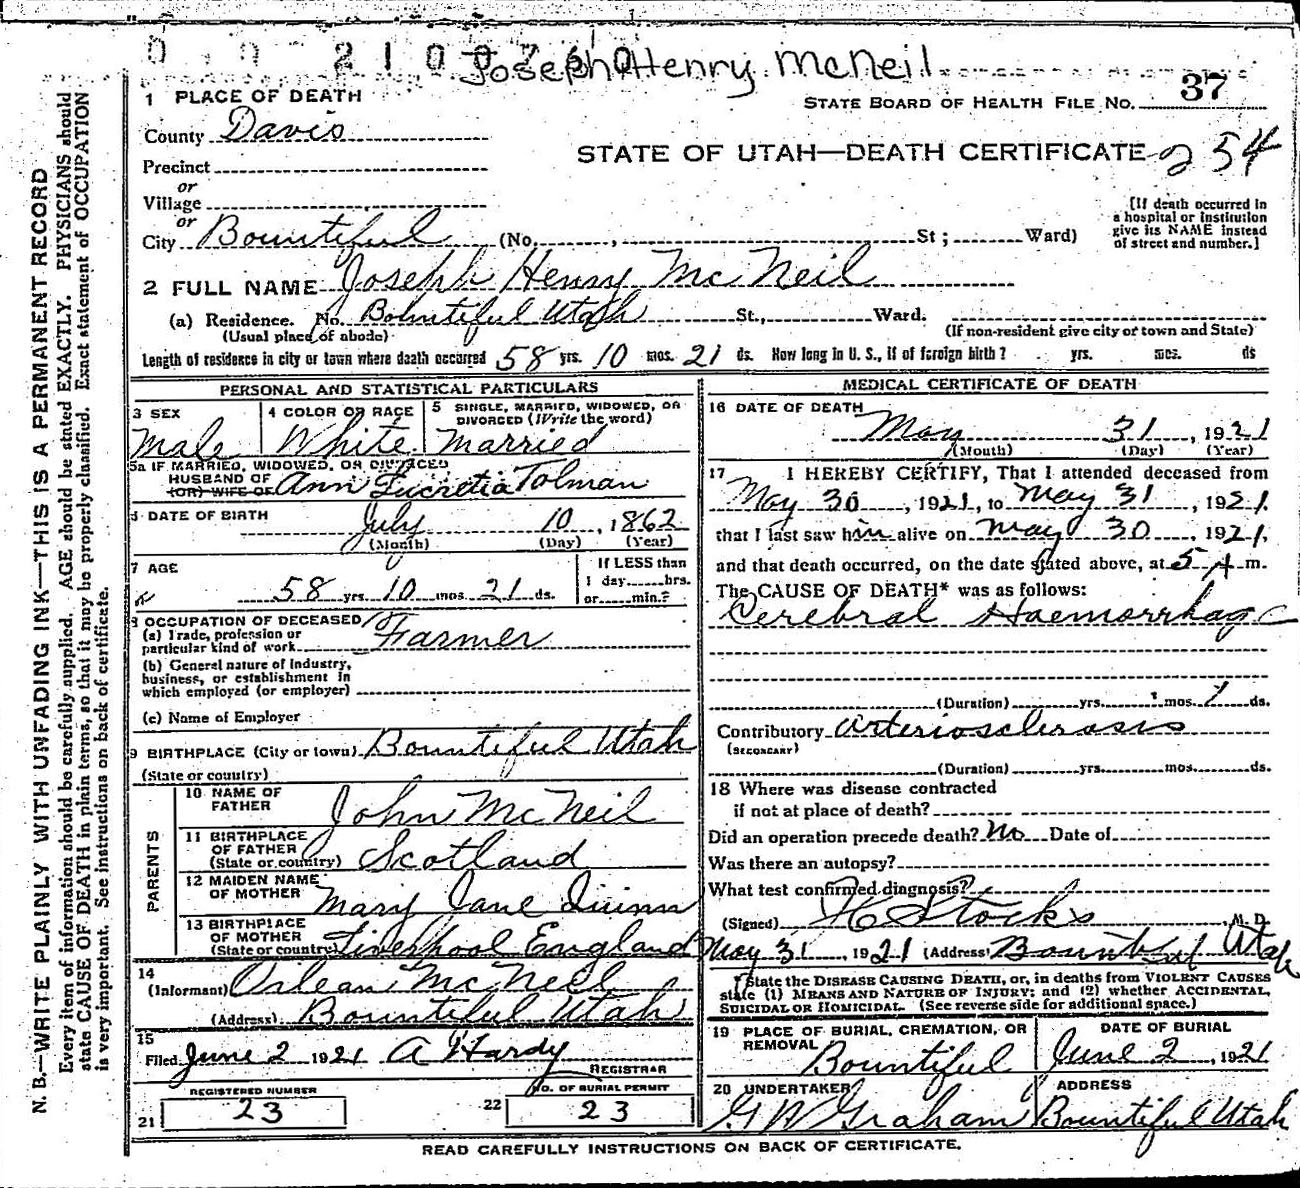 Joseph Henry McNeil
1 PLACE OF DEATH
STATE BOARD OF HEALTH FILE NO. 37
County Davis
STATE OF UTAH—DEATH CERTIFICATE 254
Precinct
or
Village
or
City Bountiful (No. , St; Ward)
[If death occurred in
a hospital or institution
give its NAME instead
of street and number.]
2 FULL NAME Joseph Henry McNeil
(a) Residence. No. Bountiful Utah St., Ward.
(Usual place of abode) (If non-resident give city or town and State)
Length of residence in city or town where death occurred 58 yrs. 10 mos. 21 ds. How long in U. S., if of foreign birth? yrs. mos. ds
PERSONAL AND STATISTICAL PARTICULARS
3 SEX
Male
4 COLOR OR RACE
White
5 SINGLE, MARRIED, WIDOWED, OR
DIVORCED (Write the word)
Married
5a IF MARRIED, WIDOWED, OR DIVORCED
HUSBAND OF Ann Lucretia Tolman
(OR) WIFE OF
6 DATE OF BIRTH July 10, 1862
(Month) (Day) (Year)
7 AGE
58 yrs. 10 mos. 21 ds.
If LESS than
1 day hrs.
or min.?
8 OCCUPATION OF DECEASED
(a) Trade, profession or
particular kind of work Farmer
(b) General nature of industry,
business, or establishment in
which employed (or employer)
(c) Name of Employer
9 BIRTHPLACE (City or town) Bountiful Utah
(State or country)
PARENTS
10 NAME OF
FATHER John McNeil
11 BIRTHPLACE
OF FATHER
(State or country) Scotland
12 MAIDEN NAME
OF MOTHER Mary Jane Quinn
13 BIRTHPLACE
OF MOTHER
(State or country) Liverpool England
14
(Informant) McNeil
(Address) Bountiful Utah
15
Filed June 2 1921 A Hardy
REGISTRAR
REGISTERED NUMBER
21 23
NO. OF BURIAL PERMIT
22 23
MEDICAL CERTIFICATE OF DEATH
16 DATE OF DEATH
May 31, 1921
(Month) (Day) (Year)
17 I HEREBY CERTIFY, That I attended deceased from
May 30, 1921, to May 31, 1921.
that I last saw him alive on May 30, 1921,
and that death occurred, on the date stated above, at 5 A m.
The CAUSE OF DEATH* was as follows:
Cerebral Haemorrhage
(Duration) yrs. mos. 1 ds.
Contributory arteriosclerosis
(SECONDARY)
(Duration) yrs. mos. ds.
18 Where was disease contracted
if not at place of death?
Did an operation precede death? No Date of
Was there an autopsy?
What test confirmed diagnosis?
(Signed) Stocks, M. D.
May 31, 1921 (Address) Bountiful Utah
State the DISEASE CAUSING DEATH, or, in deaths from VIOLENT CAUSES
state (1) MEANS AND NATURE OF INJURY; and (2) whether ACCIDENTAL,
SUICIDAL OR HOMICIDAL. (See reverse side for additional space.)
19 PLACE OF BURIAL, CREMATION, OR
REMOVAL Bountiful
DATE OF BURIAL
June 2, 1921
20 UNDERTAKER
G W Graham
ADDRESS
Bountiful Utah
READ CAREFULLY INSTRUCTIONS ON BACK OF CERTIFICATE.
N. B.—WRITE PLAINLY WITH UNFADING INK—THIS IS A PERMANENT RECORD
Every item of information should be carefully supplied. AGE should be stated EXACTLY. PHYSICIANS should
state CAUSE OF DEATH in plain terms, so that it may be properly classified. Exact statement of OCCUPATION
is very important. See instructions on back of certificate.